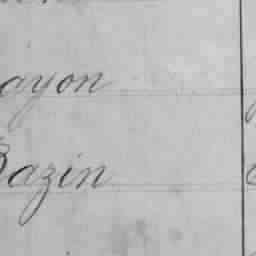 ayon
Bazin